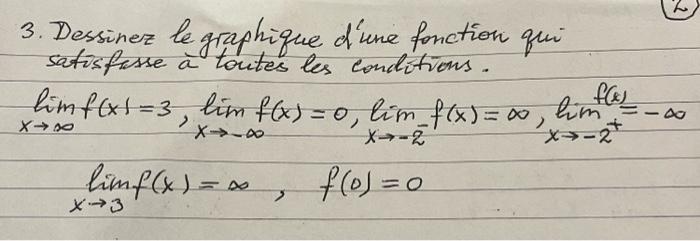 2
3. Dessinez le graphique d'une fonction qui
satisfasse à toutes les conditions.
lim f(x) = 3, lim f(x) = 0, lim f(x) = ∞, lim f(x) = -∞
x→∞ x→-∞ x→-2⁻ x→-2⁺
lim f(x) = ∞, f(0) = 0
x→3